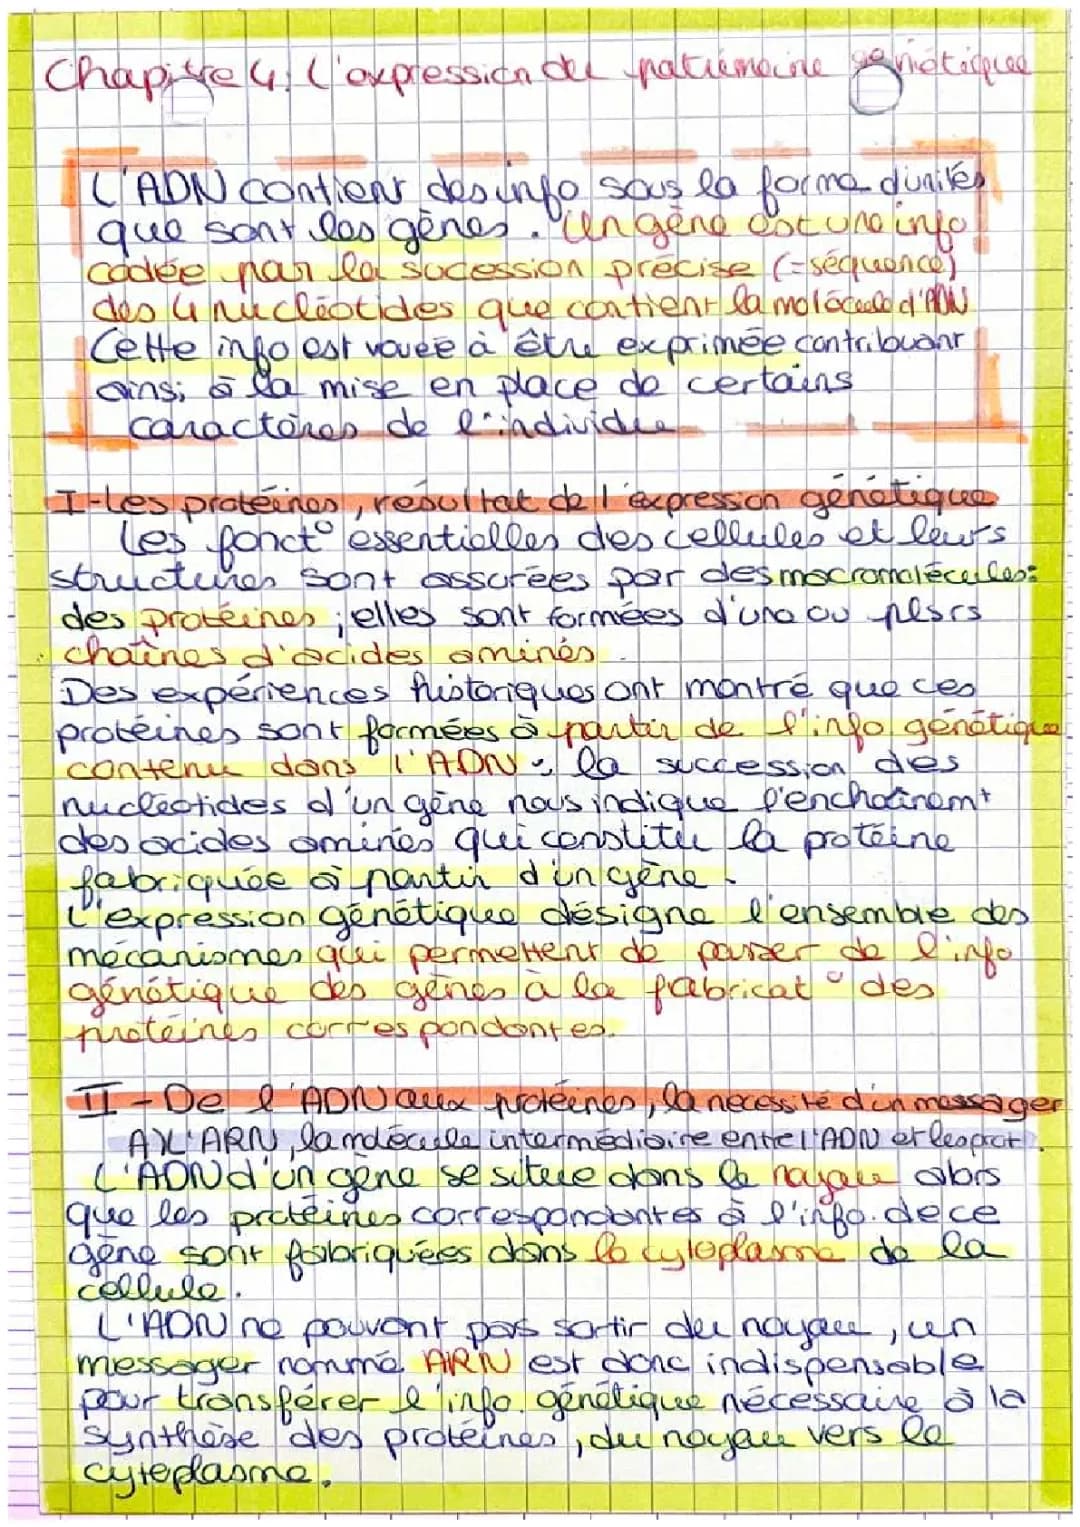 Chapitre 4: L'expression du patrimoine génétique
L'ADN contient des info sous la forme d'unités
que sont les gènes. Un gène est une info
codée par la sucession précise (=séquence)
des 4 nucléotides que contient la molécule d'ADN
Cette info est vouée à être exprimée contribuant
ainsi à la mise en place de certains
caractères de l'individu
I-Les protéines, résultat de l'expression génétique
Les fonct° essentielles des cellules et leurs
structures sont assurées par des macromolécules:
des protéines ; elles sont formées d'une ou plsrs
chaînes d'acides aminés
Des expériences historiques ont montré que ces
protéines sont formées à partir de l'info génétique
contenu dans l'ADN : la succession des
nucléotides d'un gène nous indique l'enchaînemt
des acides aminés qui constitu la protéine
fabriquée à partir d'un gène.
L'expression génétique désigne l'ensemble des
mécanismes qui permettent de passer de l'info
génétique des gènes à la fabricat° des
protéines correspondantes.
II-De l'ADN aux protéines, la nécessité d'un messager
A\ L'ARN, la molécule intermédiaire entre l'ADN et les prot.
L'ADN d'un gène se situe dans le noyau alors
que les protéines correspondantes à l'info. de ce
gène sont fabriquées dans le cytoplasme de la
cellule.
L'ADN ne pouvant pas sortir du noyau, un
messager nommé ARN est donc indispensable
pour transférer l'info. génétique nécessaire à la
synthèse des protéines, du noyau vers le
cytoplasme.